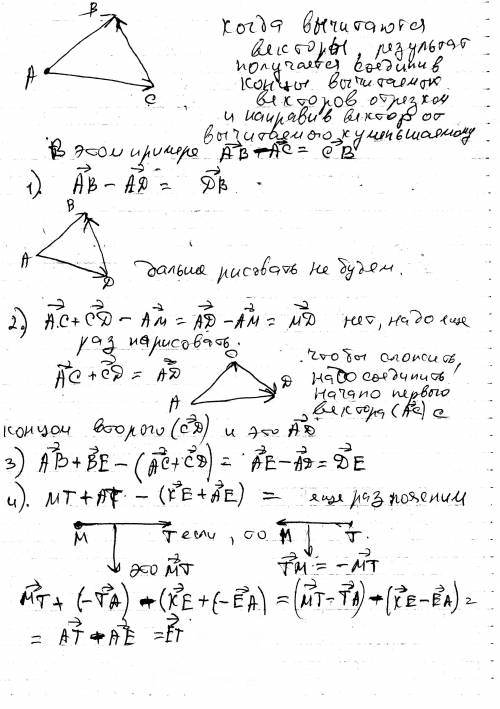 В
А
С
когда вычитаются
векторы, результат
получается соединив
концы вычитаемых
векторов отрезком
и направив вектор от
вычитаемого к уменьшаемому
В этом примере AB - AC = CB
1). AB - AD = DB
B
A
D
дальше рисовать не будем.
2.) AC + CD - AM = AD - AM = MD нет, надо еще
раз нарисовать.
AC + CD = AD
C
D
A
чтобы сложить,
надо соединить
начало первого
вектора (AC) с
концом второго (CD) и это AD
3) AB + BE - (AC + CD) = AE - AD = DE
4). MT + AT - (KE + AE) = еще раз поясним
M T если, то M T.
это MT TM = -MT
MT + (-TA) - (KE + (-EA) = (MT - TA) - (KE - EA) =
= AT - AE = ET